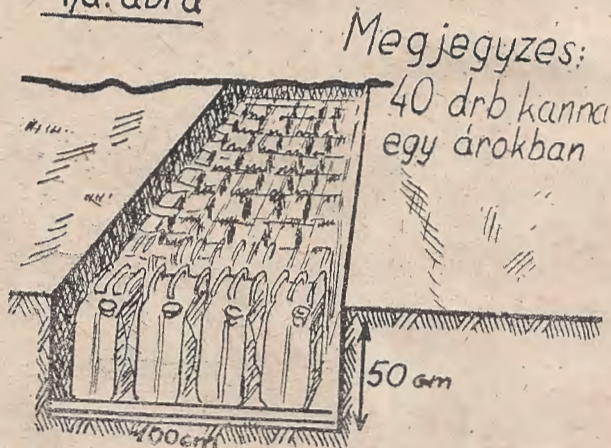 ábra
Megjegyzés:
40 drb kanna
egy árokban
50 cm
100cm